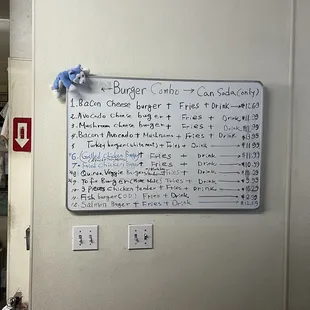 ← Burger Combo → Can Soda (only)
1. Bacon Cheese burger + Fries + Drink → $12.69
2. Avocado cheese burger + Fries + Drink
3. Mushroom cheese burger + Fries + Drink
4. Bacon + Avocado + Mushroom + Fries + Drink
5 Turkey burger (white meat) + Fries + Drink → $11.99
6. Grilled chicken Burger + Fries + Drink
7 Fried chicken burger + Fries + Drink
8. Quinoa Veggie Burger + Fries + Drink
9. Tofu Burger + Fries + Drink
10. 3 Pieces Chicken tender + Fries + Drink
11. Fish burger + Fries + Drink
12. Salmon Burger + Fries + Drink